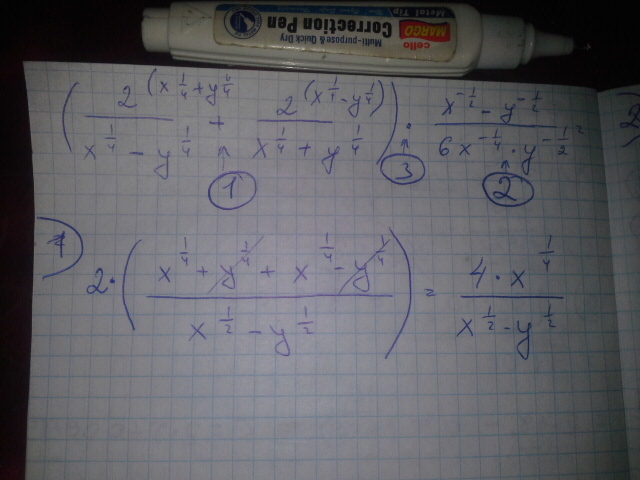 cello
MARCO
Metal Tip
Correction Pen
Multi-purpose & Quick Dry
( 2^(x^(1/4) + y^(1/4) / (x^(1/4) - y^(1/4)) + 2^(x^(1/4) - y^(1/4)) / (x^(1/4) + y^(1/4)) ) · (x^(-1/2) - y^(-1/2)) / (6x^(-1/4) · y^(-1/2)) =
1 3 2
1) 2 · ( (x^(1/4) + y^(1/4) + x^(1/4) - y^(1/4)) / (x^(1/2) - y^(1/2)) ) = (4 · x^(1/4)) / (x^(1/2) - y^(1/2))